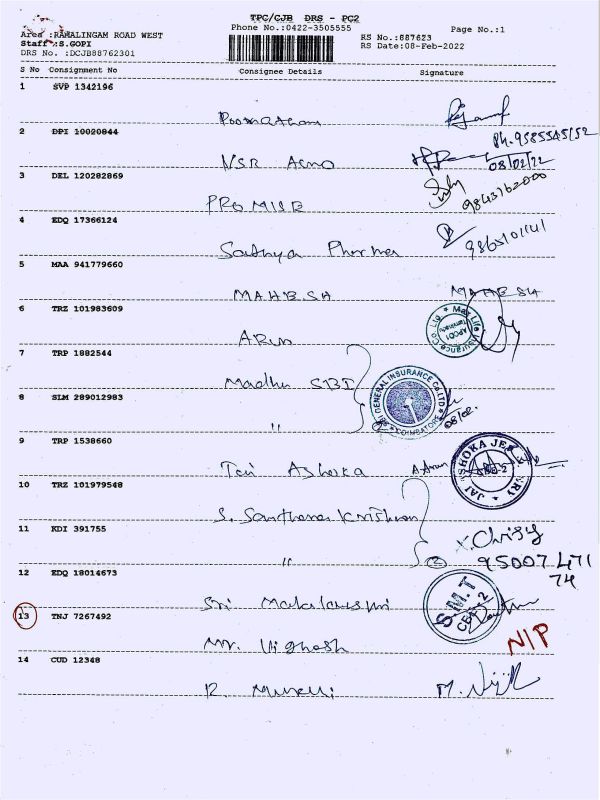 TPC/CJB DRS - PC2
Phone No.:0422-3505555
Page No.:1
Area :RAMALINGAM ROAD WEST
Staff :S.GOPI
DRS No. :DCJB88762301
RS No.:887623
RS Date:08-Feb-2022
S No Consignment No Consignee Details Signature
1 SVP 1342196
2 DPI 10020844
Ph. 9585545152
NSR
08/02/22
3 DEL 120282869
PROMISE 9843762000
4 EDQ 17366124
Sathya Pharma 9865101141
5 MAA 941779660
MAHESH MAHESH
6 TRZ 101983609
Max Life Insurance Co. Ltd
ARUN
7 TRP 1882544
Madhu SBI
SBI GENERAL INSURANCE Co.LTD
COIMBATORE
8 SLM 289012983
" 08/02.
9 TRP 1538660
Jai Ashoka
JAI ASHOKA JEWELLERY
10 TRZ 101979548
S. Santhana Krishnan
11 KDI 391755
"
2
95007 471
74
12 EDQ 18014673
Sri Mahalakshmi
S.M.T
CBE-2
13 TNJ 7267492
Mr. Vighesh N/P
14 CUD 12348
R. Murali